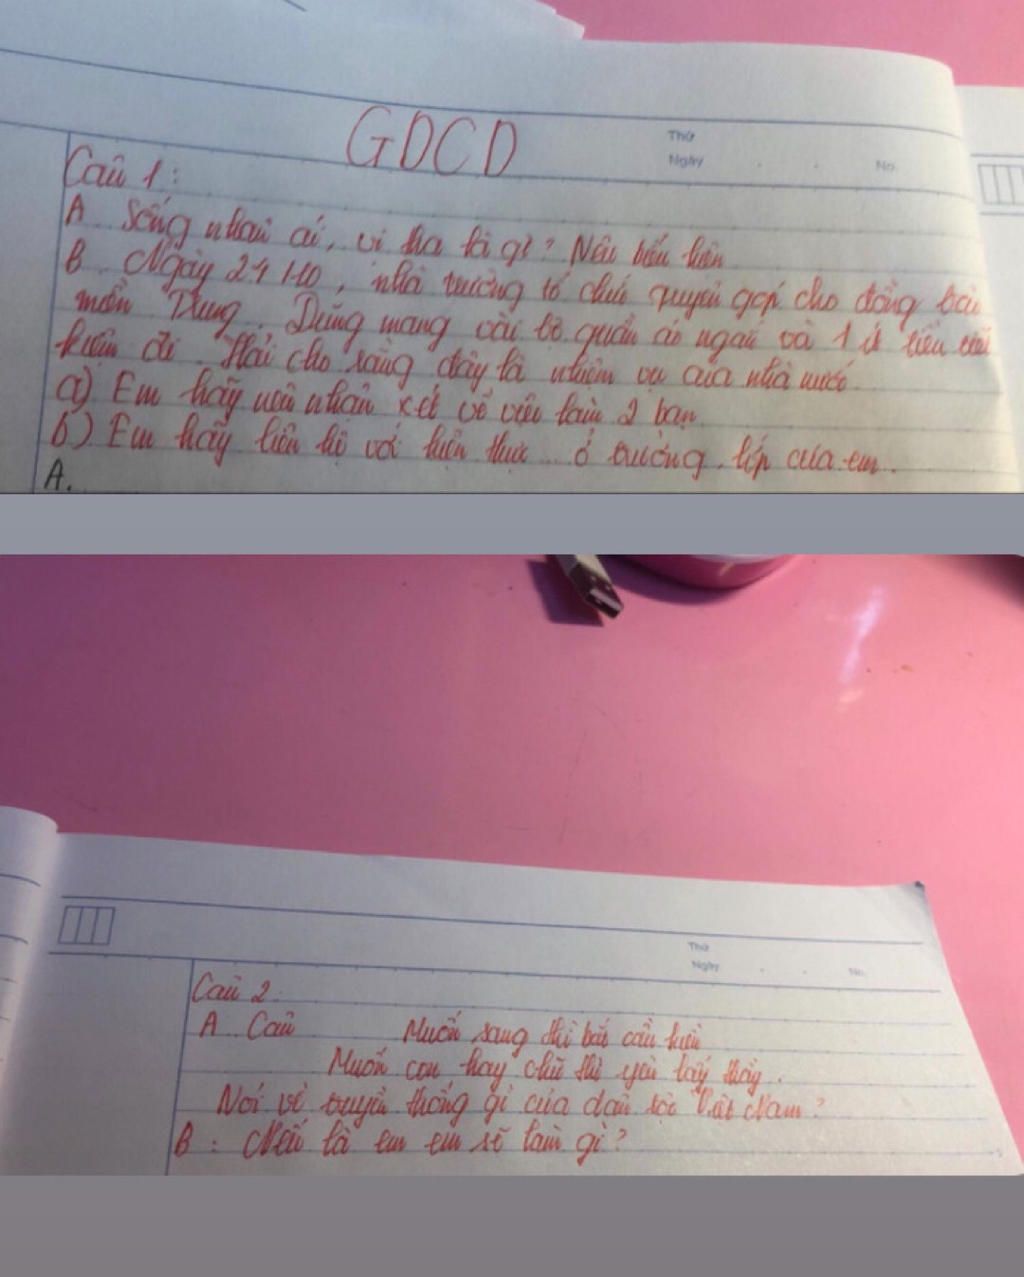 GDCD
Thứ
Ngày
No.
Câu 1:
A. Sống nhân ái, vị tha là gì? Nêu biểu hiện
B. Ngày 24/10, nhà trường tổ chức quyên góp cho đồng bào
miền Trung. Dũng mang vài bộ quần áo ngắn và 1 ít tiền
đi. Hải cho rằng đây là nhiệm vụ của nhà nước.
a) Em hãy nêu nhận xét về việc làm 2 bạn.
b) Em hãy liên hệ với hiện thực ở trường, lớp của em.
A.
Thứ
Ngày
No.
Câu 2.
A. Câu Muốn sang thì bắc cầu kiều
Muốn con hay chữ thì yêu lấy thầy.
Nói về truyền thống gì của dân tộc Việt Nam?
B: Nếu là em em sẽ làm gì?